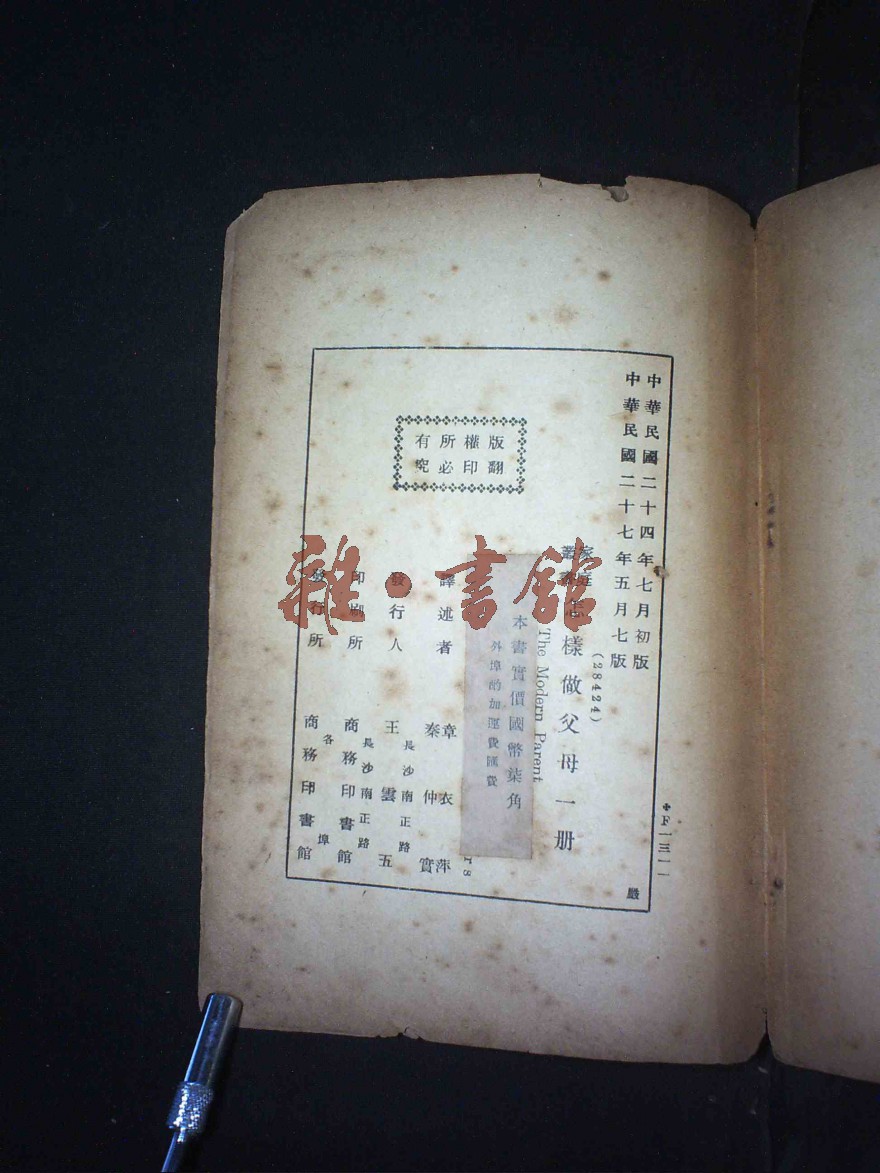 中華民國二十四年七月初版
中華民國二十七年五月七版
✥F一三一一
(28424)
家庭叢書
怎樣做父母一册
The Modern Parent
本書實價國幣柒角
外埠酌加運費匯費
版權所有
翻印必究
譯述者
章衣萍
秦仲實
發行人
長沙南正路
王雲五
印刷所
長沙南正路
商務印書館
發行所
各埠
商務印書館
嚴
雜·書館